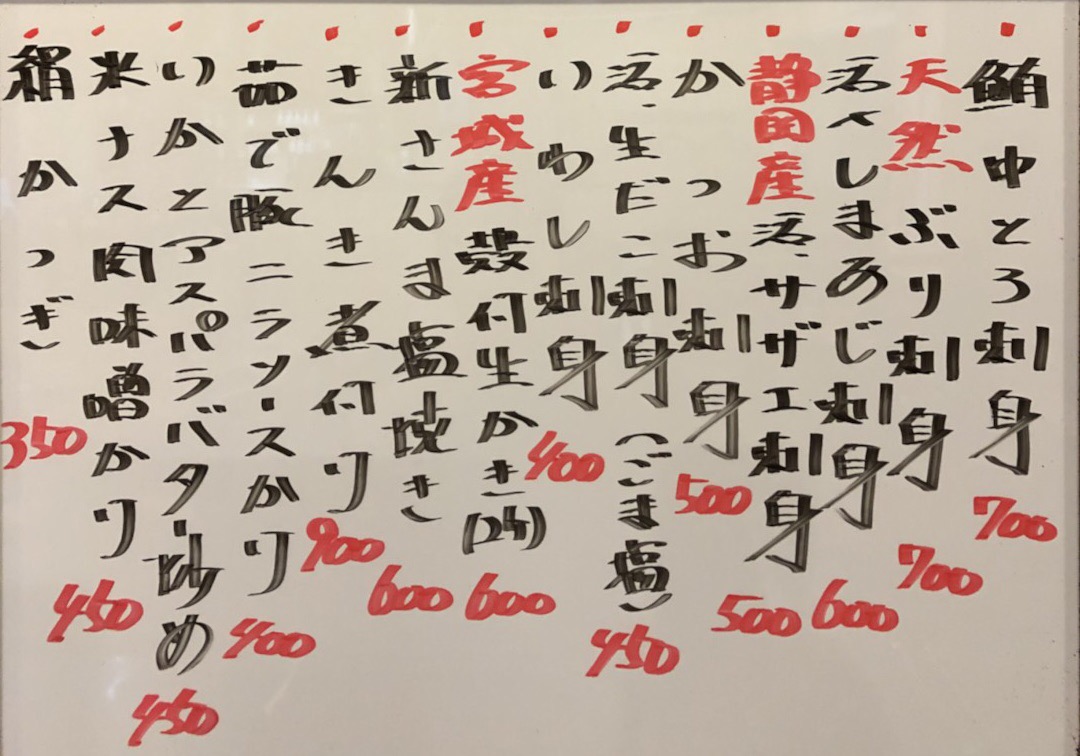 鮪中とろ刺身 700
天然ぶり刺身 700
活〆しまあじ刺身 600
静岡産活サザエ刺身 500
かつお刺身 500
活生だこ刺身(ごま塩) 450
いわし刺身 400
宮城産殻付生かき(2ケ) 600
新さんま塩焼き 600
きんき煮付け 900
茹で豚ニラソースかけ 400
いかとアスパラバター炒め 450
米ナス肉味噌かけ 450
絹かつぎ 350